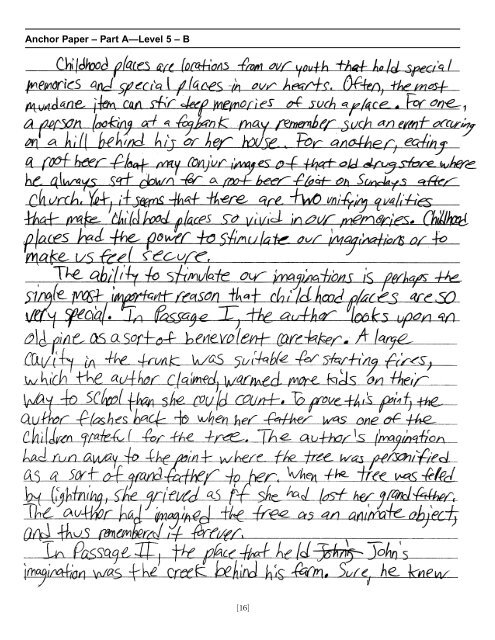 Anchor Paper – Part A—Level 5 – B
Childhood places are locations from our youth that hold special
memories and special places in our hearts. Often, the most
mundane item can stir deep memories of such a place. For one,
a person looking at a fogbank may remember such an event occuring
on a hill behind his or her house. For another, eating
a root beer float may conjur images of that old drugstore where
he always sat down for a root beer float on Sundays after
church. Yet, it seems that there are two unifying qualities
that make childhood places so vivid in our memories. Childhood
places had the power to stimulate our imaginations or to
make us feel secure.
The ability to stimulate our imaginations is perhaps the
single most important reason that childhood places are so
very special. In Passage I, the author looks upon an
old pine as a sort of benevolent caretaker. A large
cavity in the trunk was suitable for starting fires,
which the author claimed, warmed more kids on their
way to school than she could count. To prove this point, the
author flashes back to when her father was one of the
children grateful for the tree. The author's imagination
had run away to the point where the tree was personified
as a sort of grandfather to her. When the tree was felled
by lightning, she grieved as if she had lost her grandfather.
The author had imagined the tree as an animate object,
and thus remembered it forever.
In Passage II, the place that held John's John's
imagination was the creek behind his farm. Sure, he knew
[16]